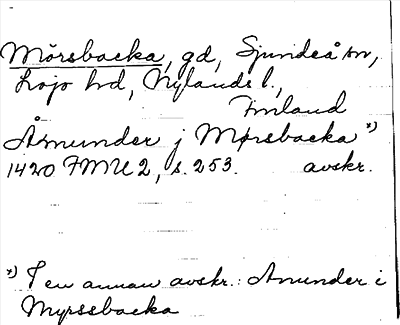 Mörsbacka, gd, Sjundeå sn,
Lojo hd, Nylands l.,
Finland
Åmunder j Mørsbacka *)
1420 FMU 2, s. 253. avskr.
*) I en annan avskr.: Amunder i
Myrssbacka